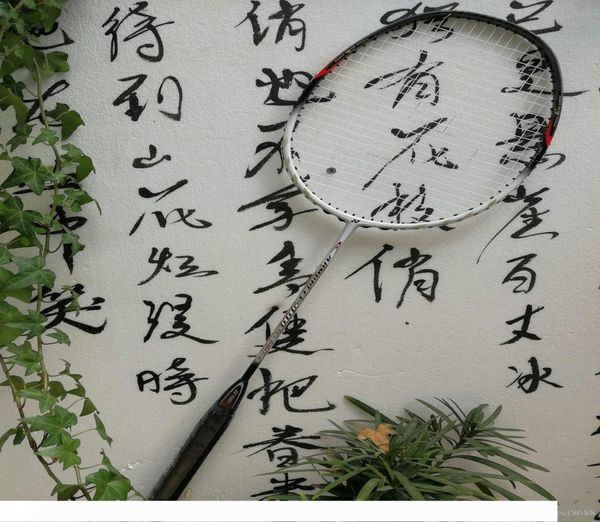 已是悬崖百丈冰
犹有花枝俏
俏也不争春只把春
待到山花烂漫時
中笑